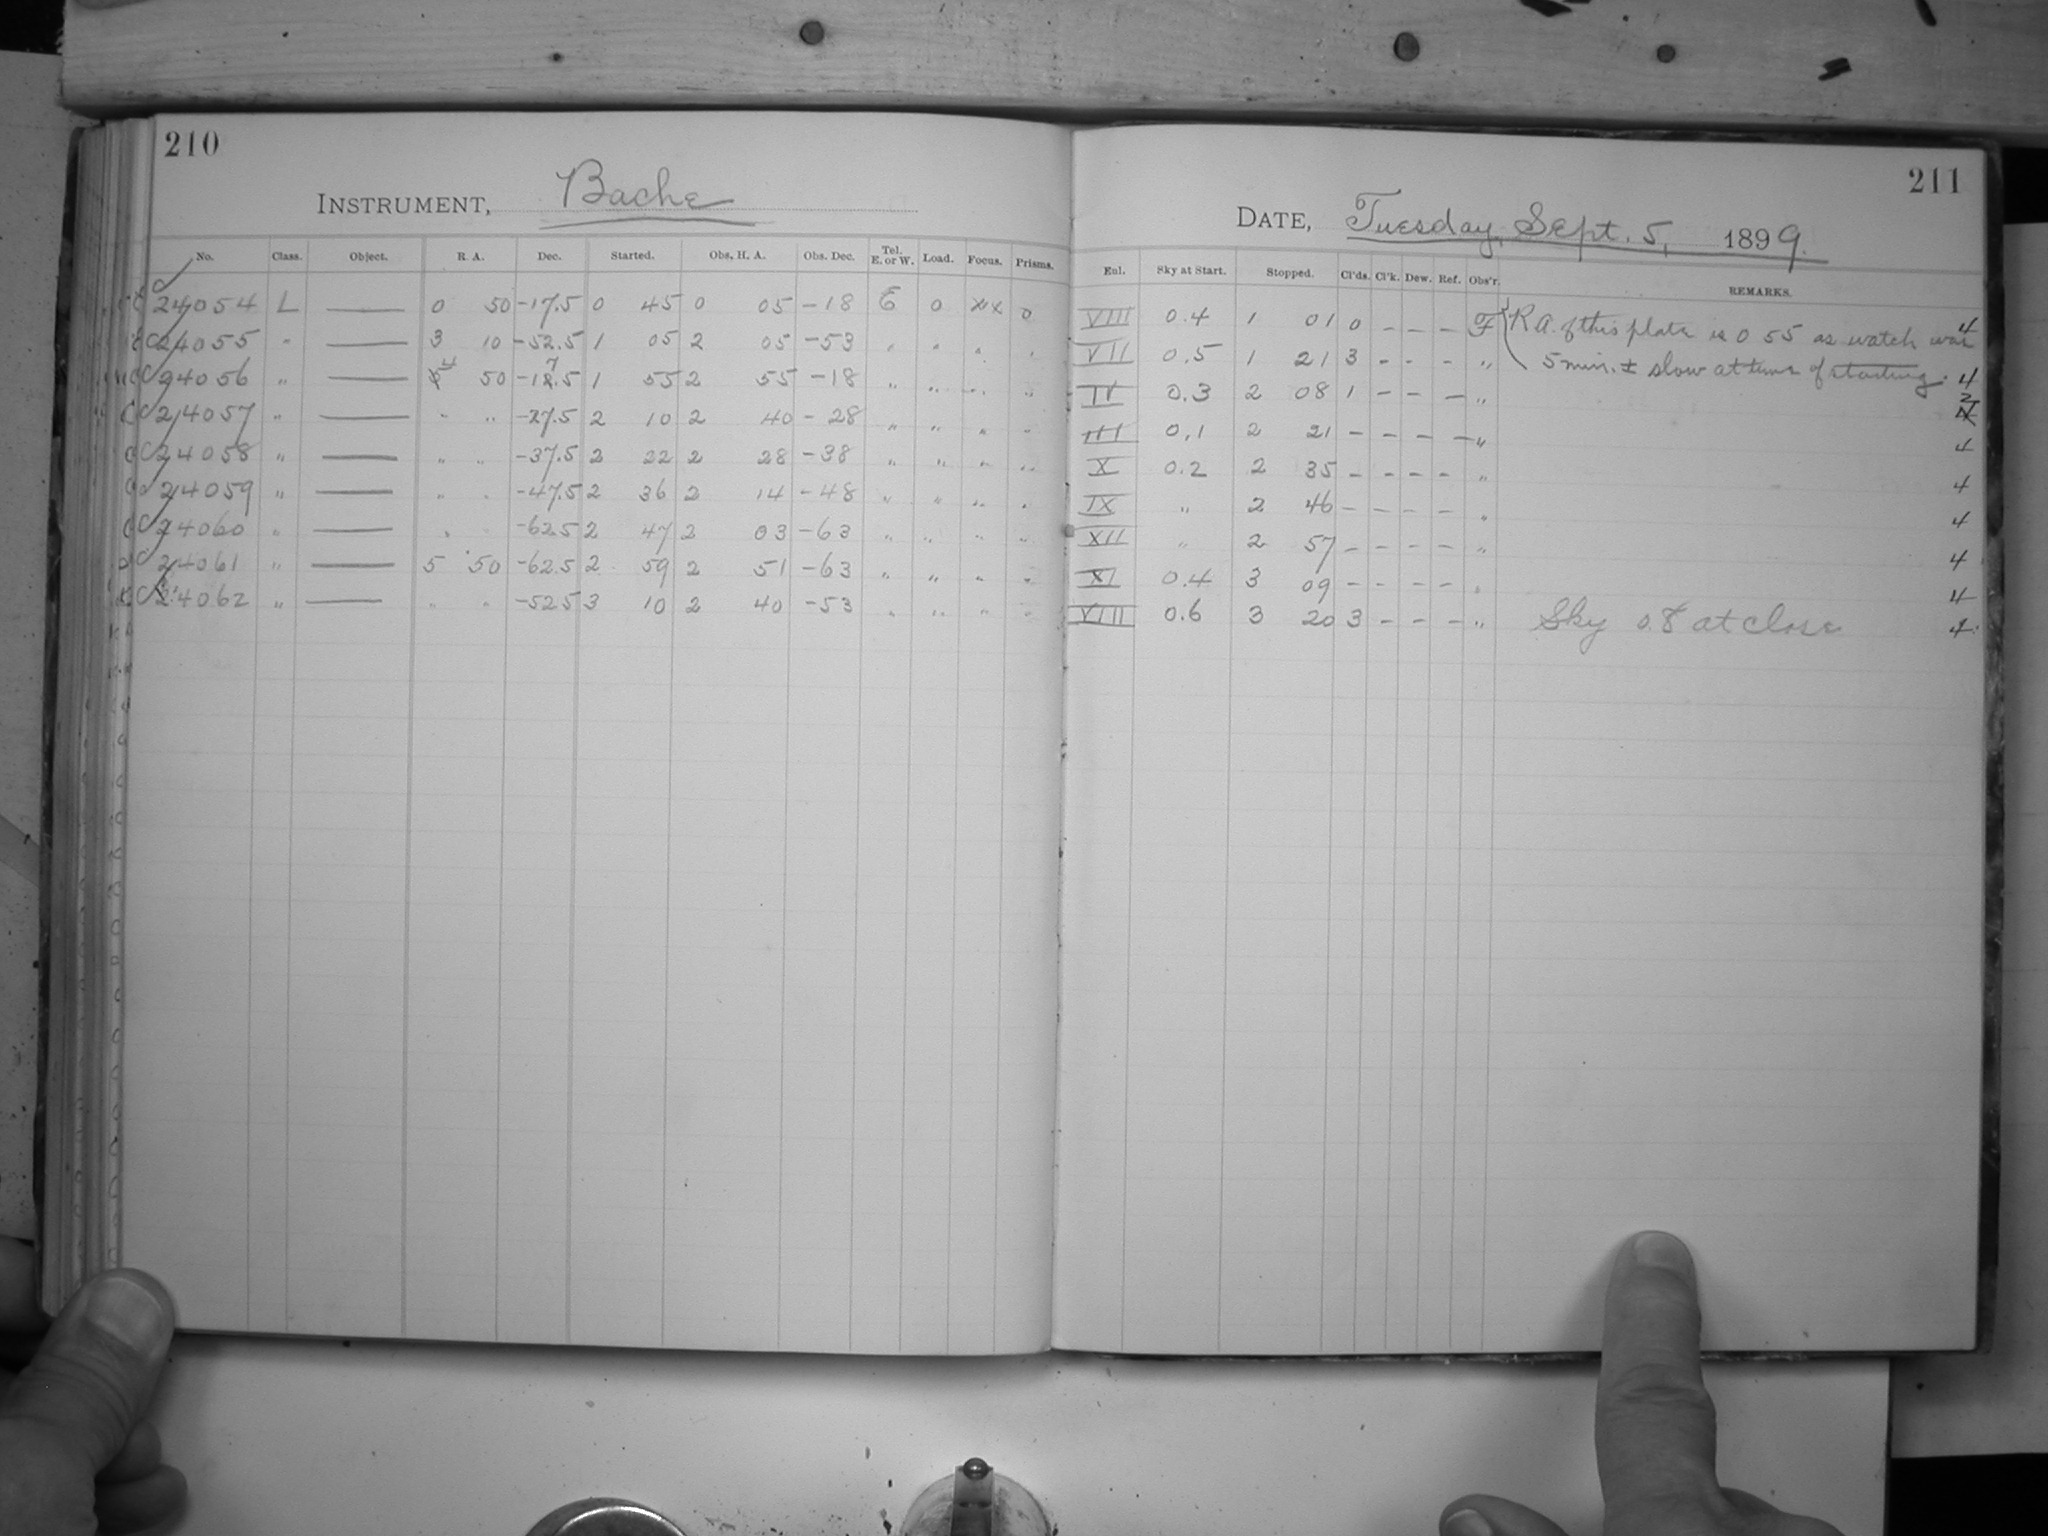 210
INSTRUMENT, Bache
No. Class. Object. R. A. Dec. Started. Obs. H. A. Obs. Dec. Tel. E. or W. Load. Focus. Prisms.
C 24054 L —— 0 50 -17.5 0 45 0 05 -18 E 0 xix 0
C 24055 " —— 3 10 -52.5 1 05 2 05 -53 " " " "
C 24056 " —— 4 50 -17.5 1 55 2 55 -18 " " " "
C 24057 " —— " " -27.5 2 10 2 40 -28 " " " "
C 24058 " —— " " -37.5 2 22 2 28 -38 " " " "
C 24059 " —— " " -47.5 2 36 2 14 -48 " " " "
C 24060 " —— " -62.5 2 47 2 03 -63 " " " "
C 24061 " —— 5 50 -62.5 2 59 2 51 -63 " " " "
C 24062 " —— " " -52.5 3 10 2 40 -53 " " " "
211
DATE, Tuesday, Sept. 5, 1899.
Enl. Sky at Start. Stopped. Cl'ds. Cl'k. Dew. Ref. Obs'r. REMARKS.
VIII 0.4 1 01 0 - - - F R.A. of this plate is 0 55 as watch was 4
VII 0.5 1 21 3 - - - " 5 min. ± slow at time of starting. 4
IV 0.3 2 08 1 - - - " 2
III 0.1 2 21 - - - - " 4
X 0.2 2 35 - - - - " 4
IX " 2 46 - - - - " 4
XII " 2 57 - - - - " 4
XI 0.4 3 09 - - - - " 4
VIII 0.6 3 20 3 - - - " Sky 0.8 at close 4